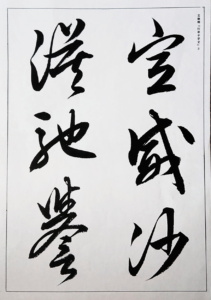 宣威沙
漠馳譽